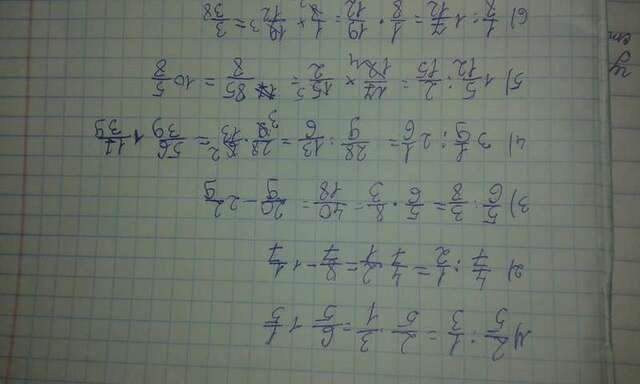 1) 2/5 : 1/3 = 2/5 · 3/1 = 6/5 1 1/5
2) 4/7 : 1/2 = 4/7 · 2/1 = 8/7 - 1 1/7
3) 5/6 : 3/8 = 5/6 · 8/3 = 40/18 = 20/9 - 2 2/9
4) 3 1/9 : 2 1/6 = 28/9 : 13/6 = 28/9 3 · 6 2/13 = 56/39 1 17/39
5) 1 5/12 : 2/15 = 17/12 4 × 15 5/2 = 85/8 = 10 5/8
6) 1/8 : 1 7/12 = 1/8 : 19/12 = 1/8 2 × 12 3/19 = 3/38